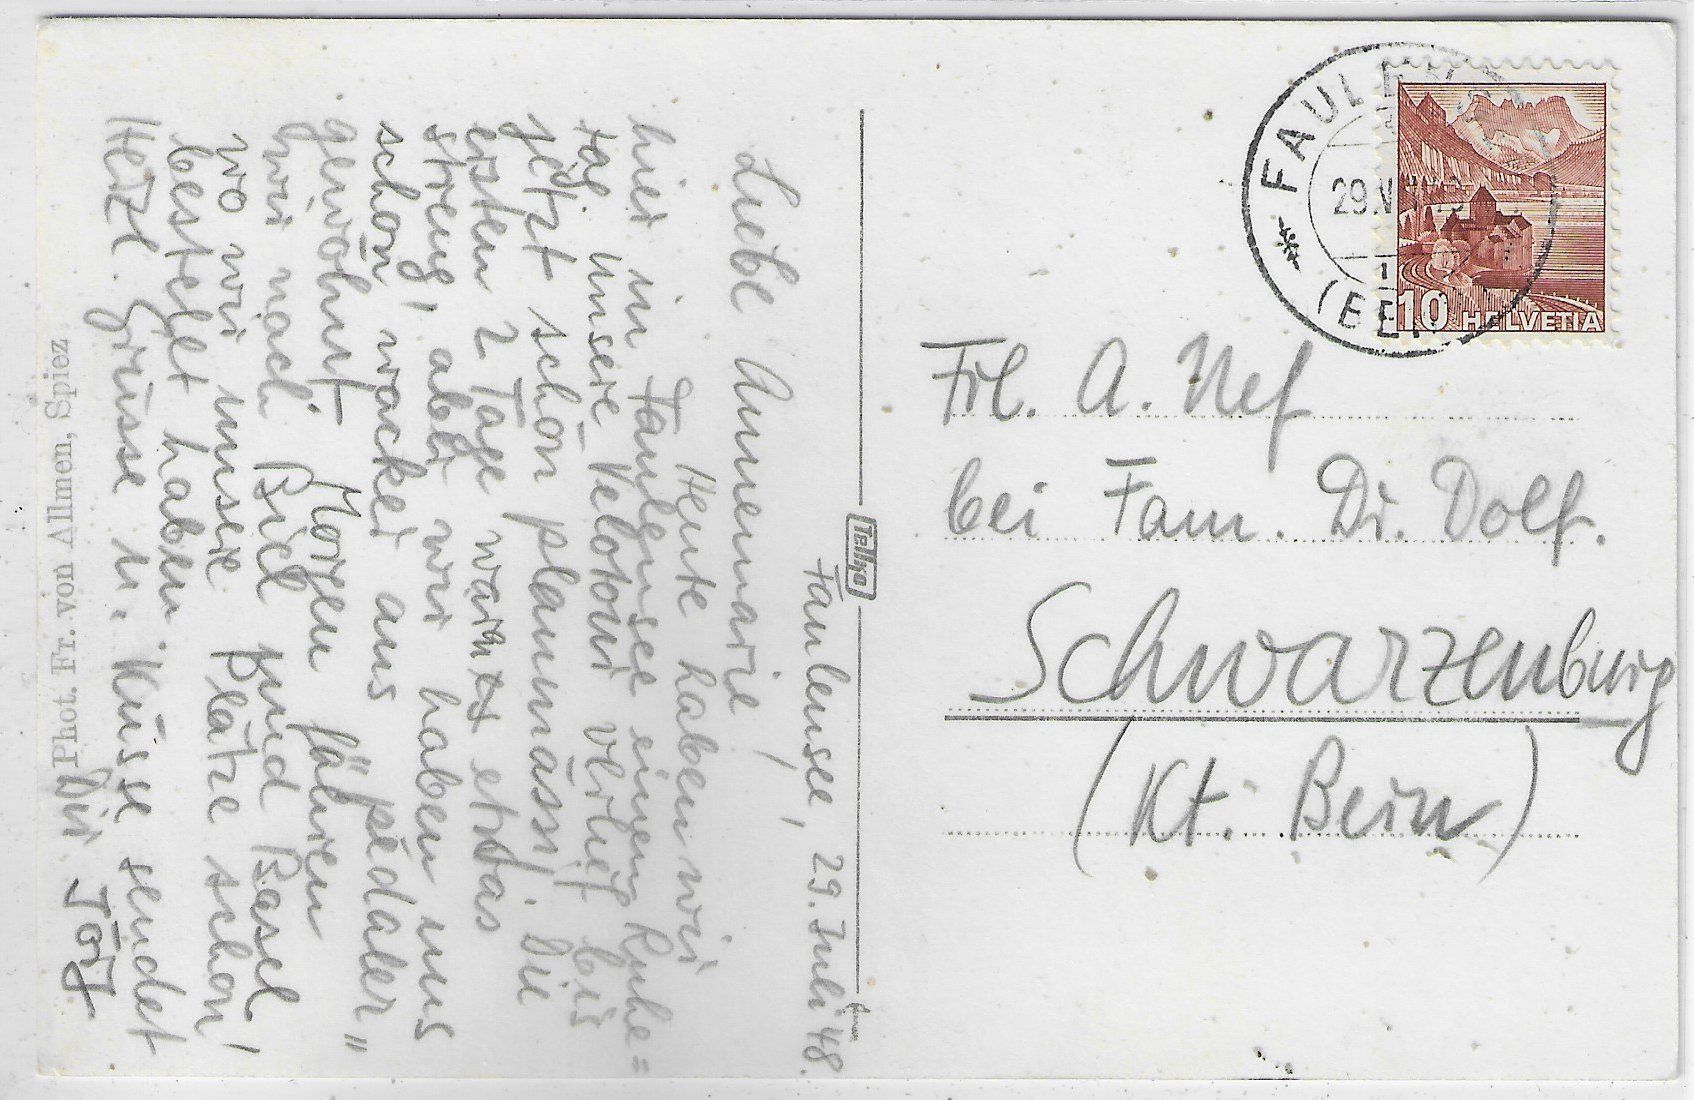 Faulensee, 29. Juli 48.
Liebe Annemarie,
Heute haben wir
hier in Faulensee einen Ruhe=
tag unsere Velotour verlief bis
jetzt schon planmässi. Die
ersten 2 Tage waren etwas
streng, aber wir haben uns
schon wacker ans "pedalen"
gewöhnt. Morgen fahren
wir nach Biel und Basel
wo wir unsere Plätze schon
bestellt haben.
Herzl. Grüsse u. Küsse sendet
Dir Jörg
Phot. Fr. von Allmen, Spiez
Telko
FAULENSEE
29.V
(BE
10 HELVETIA
Frl. A. Nef
bei Fam. Dr. Dolf.
Schwarzenburg
(Kt. Bern)